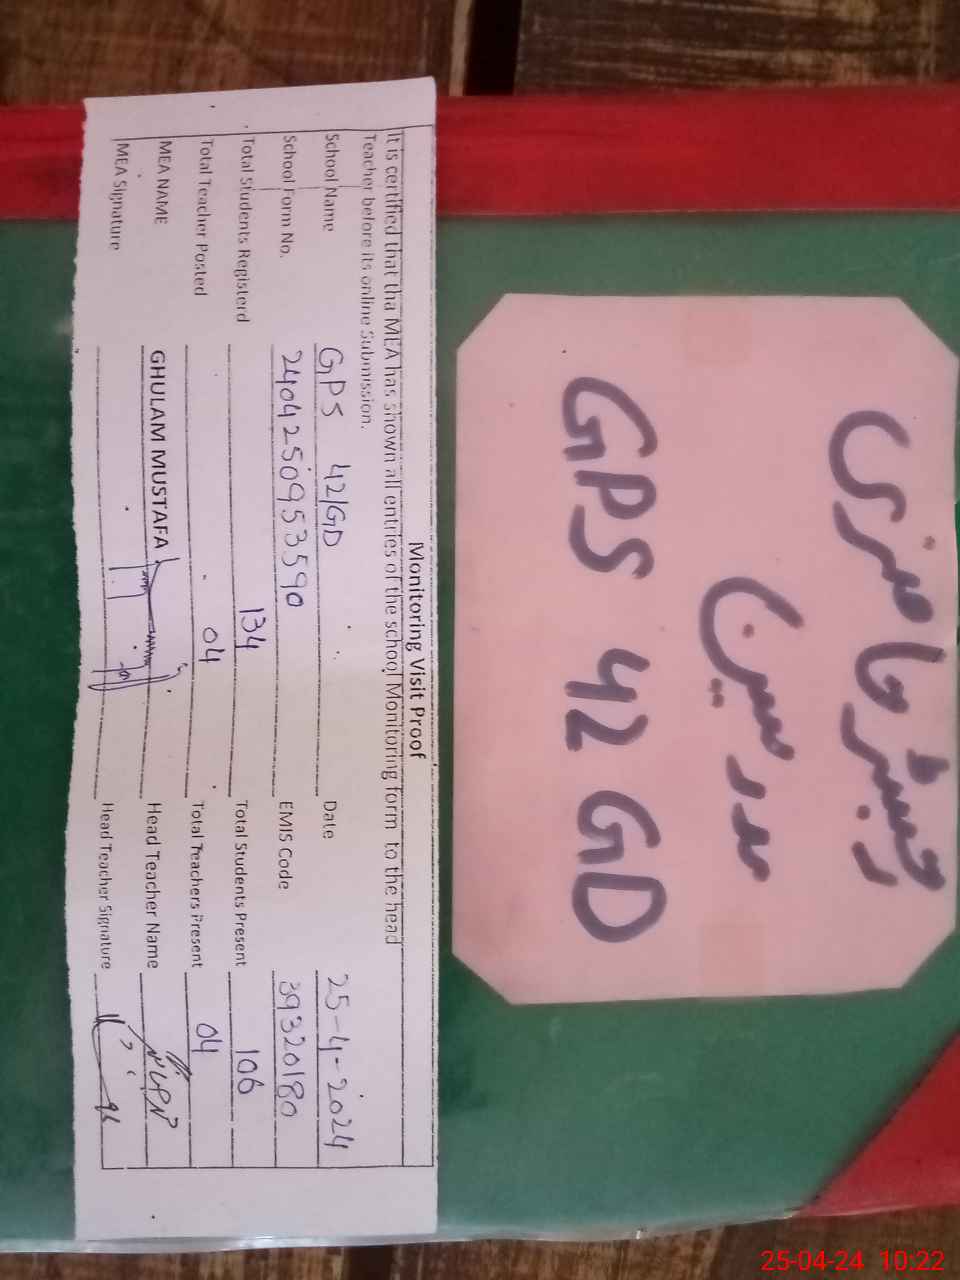 رجسٹر حاضری
مدرسین
GPS 42 GD
Monitoring Visit Proof
It is certified that tha MEA has shown all entries of the school Monitoring form to the head
Teacher before its online Submission.
School Name GPS 42/GD Date 25-4-2024
School Form No. 2404250953590 EMIS Code 39320180
Total Students Registerd 134 Total Students Present 106
Total Teacher Posted 04 Total Teachers Present 04
MEA NAME GHULAM MUSTAFA Head Teacher Name
MEA Signature Head Teacher Signature
25-04-24 10:22